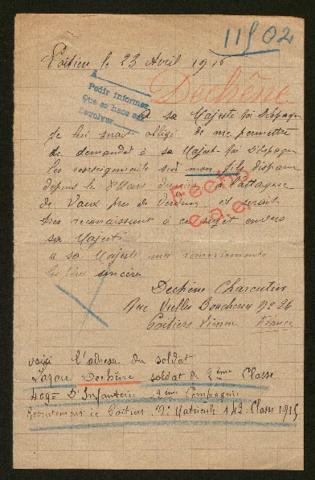 11902
Poitiers le 23 Avril 1916
A
Pedir informes
Que se haca
Devolver
Dechêne
a sa Majesté roi d'Espagne
Je lui serait obligé de me permettre
de demander à sa Majesté roi d'Espagne
les renseignements sur mon fils disparu
depuis le Mars à l'attaque
de Vaux près de Verdun et serait
très reconnaissant à ce sujet envers
sa Majesté
Fecho
a sa Majesté mes remerciements
les plus sincère
Dechêne Charcutier
Rue Vielles Boucheries No 26
Poitiers Vienne France
voici l'adresse du soldat
Lazare Dechêne soldat de 2ème Classe
409e D'Infanterie ème Compagnie
Recrutement de Poitiers No Matricule 142 Classe 1915